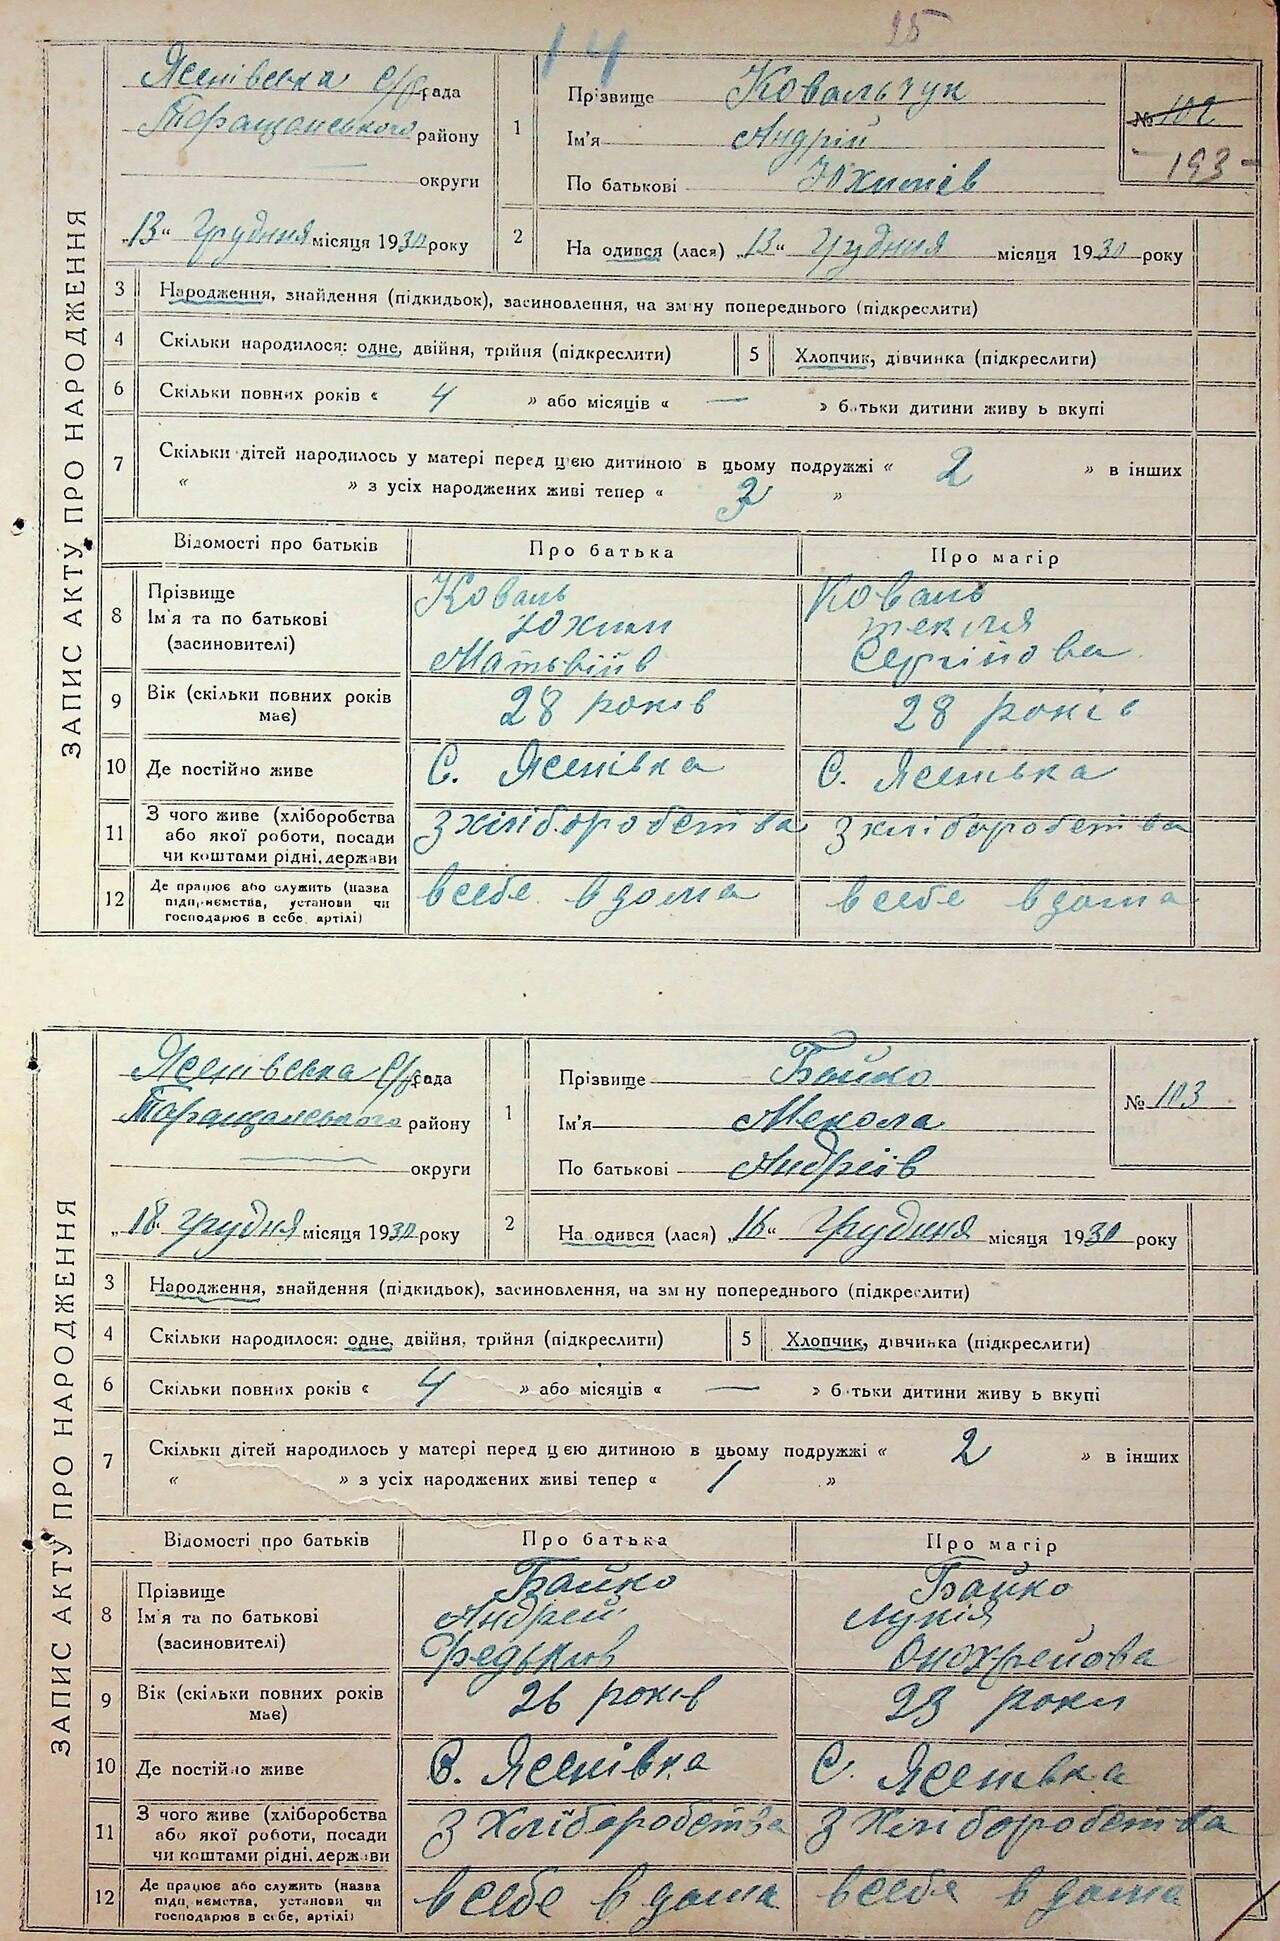 14 25
ЗАПИС АКТУ ПРО НАРОДЖЕННЯ
Ясенівська с/б рада
Таращанського району
— округи
„13“ Грудня місяця 1930 року
1
Прізвище Ковальчук
Ім'я Андрій
По батькові Юхимів
№ 102
193
2 На одився (лася) „13“ Грудня місяця 1930 року
3 Народження, знайдення (підкидьок), засиновлення, на зм ну попереднього (підкреслити)
4 Скільки народилося: одне, двійня, трійня (підкреслити) 5 Хлопчик, дівчинка (підкреслиги)
6 Скільки повних років « 4 » або місяців « — » батьки дитини живу ь вкупі
7 Скільки дітей народилось у матері перед цією дитиною в цьому подружжі « 2 » в інших
« » з усіх народжених живі тепер « 3 »
Відомості про батьків Про батька Про матір
8 Прізвище Коваль Коваль
Ім'я та по батькові Юхим Текля
(засиновителі) Матьвіїв Сергійова
9 Вік (скільки повних років має) 28 років 28 років
10 Де постійно живе С. Ясенівка С. Ясенівка
11 З чого живе (хліборобства
або якої роботи, посади
чи коштами рідні, держави
З хліборобства З хліборобства
12 Де працює або служить (назва
підприємства, установи чи
господарює в себе, артілі)
в себе вдома в себе вдома
ЗАПИС АКТУ ПРО НАРОДЖЕННЯ
Ясенівська с/б рада
Таращанського району
— округи
„18“ Грудня місяця 1930 року
1
Прізвище Бойко
Ім'я Мекола
По батькові Андреів
№ 103
2 На одився (лася) „16“ Грудня місяця 1930 року
3 Народження, знайдення (підкидьок), засиновлення, на зм ну попереднього (підкреслити)
4 Скільки народилося: одне, двійня, трійня (підкреслити) 5 Хлопчик, дівчинка (підкреслити)
6 Скільки повних років « 4 » або місяців « — » батьки дитини живу ь вкупі
7 Скільки дітей народилось у матері перед цією дитиною в цьому подружжі « 2 » в інших
« » з усіх народжених живі тепер « 1 »
Відомості про батьків Про батька Про матір
8 Прізвище Бойко Бойко
Ім'я та по батькові Андрей Лукія
(засиновителі) Федьков Онохрейова
9 Вік (скільки повних років має) 26 років 23 роки
10 Де постійно живе С. Ясенівка С. Ясенівка
11 З чого живе (хліборобства
або якої роботи, посади
чи коштами рідні, держави
З Хліборобства З Хліборобства
12 Де працює або служить (назва
підприємства, установи чи
господарює в себе, артілі)
в себе вдома в себе вдома